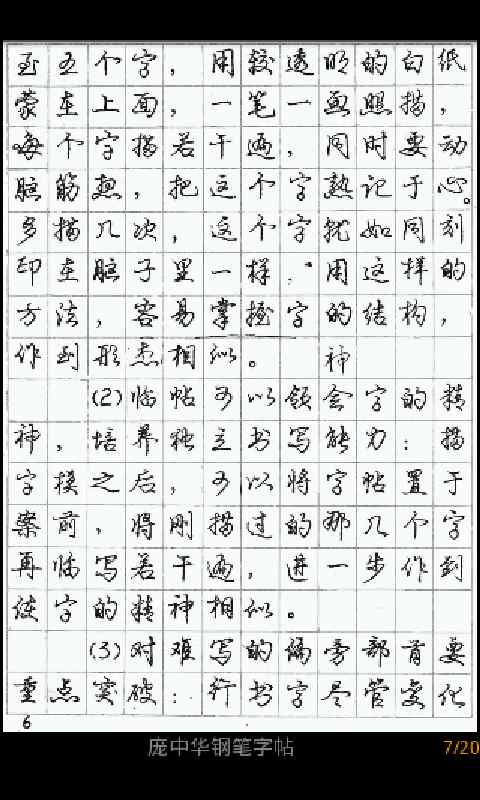 至五个字，用较透明的白纸
蒙在上面，一笔一画照描，
每个字描若干遍，同时要动
脑筋想，把这个字熟记于心。
多描几次，这个字就如同刻
印在脑子里一样，用这样的
方法，容易掌握字的结构，
作到形态相似。 神
(2)临帖可以领会字的精
神，培养独立书写能力：描
字模之后，可以将字帖置于
案前，将刚描过的那几个字
再临写若干遍，进一步作到
该字的精神相似。
(3)对难写的偏旁部首要
重点突破：行书字尽管变化
6
庞中华钢笔字帖
7/20